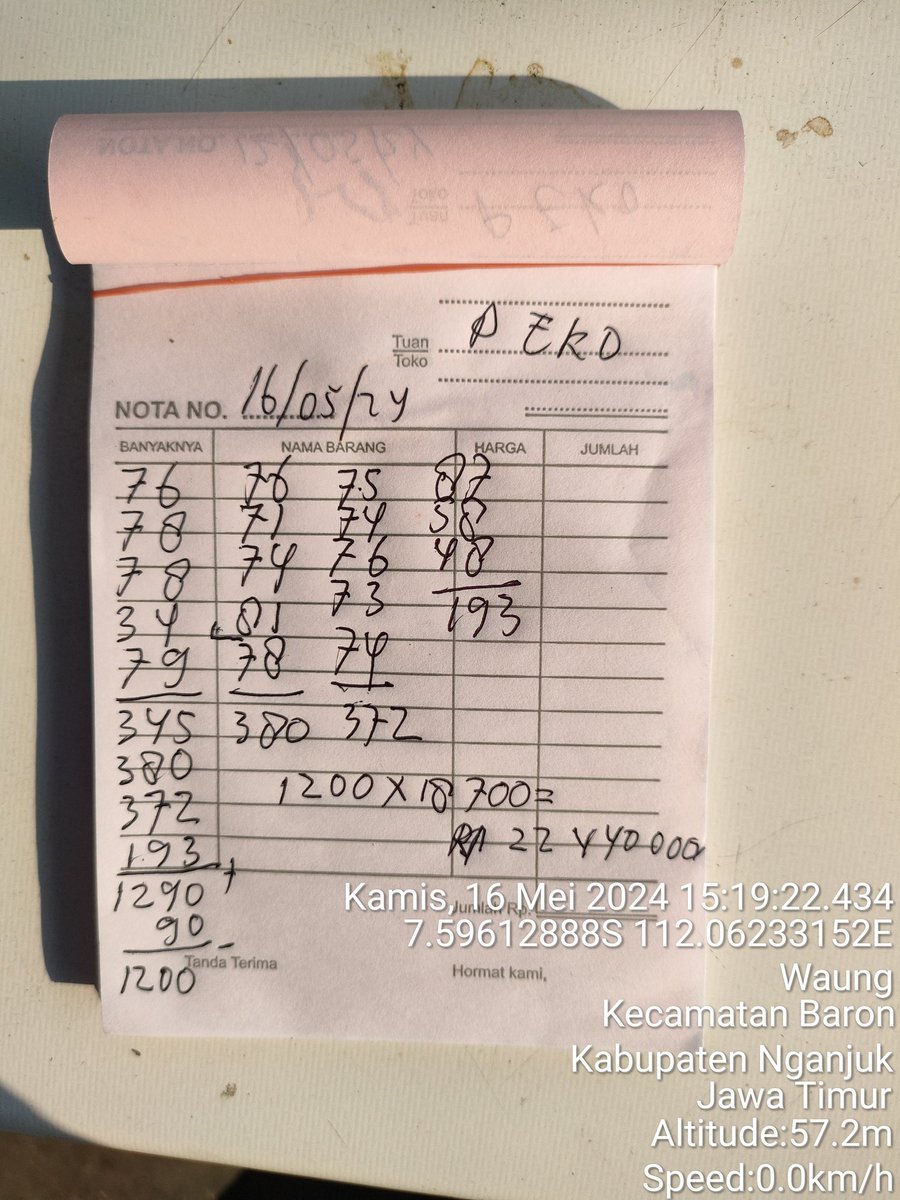 P EKO
Tuan
Toko
NOTA NO. 16/05/24
BANYAKNYA NAMA BARANG HARGA JUMLAH
76 76 75 87
78 71 74 58
78 74 76 48
34 81 73 193
79 78 74
345 380 372
380
372
193 +
1290
90 -
1200
1200 X 18 700=
Rp 22 440 000
Jumlah Rp.
Tanda Terima
Hormat kami,
Kamis, 16 Mei 2024 15:19:22.434
7.59612888S 112.06233152E
Waung
Kecamatan Baron
Kabupaten Nganjuk
Jawa Timur
Altitude:57.2m
Speed:0.0km/h